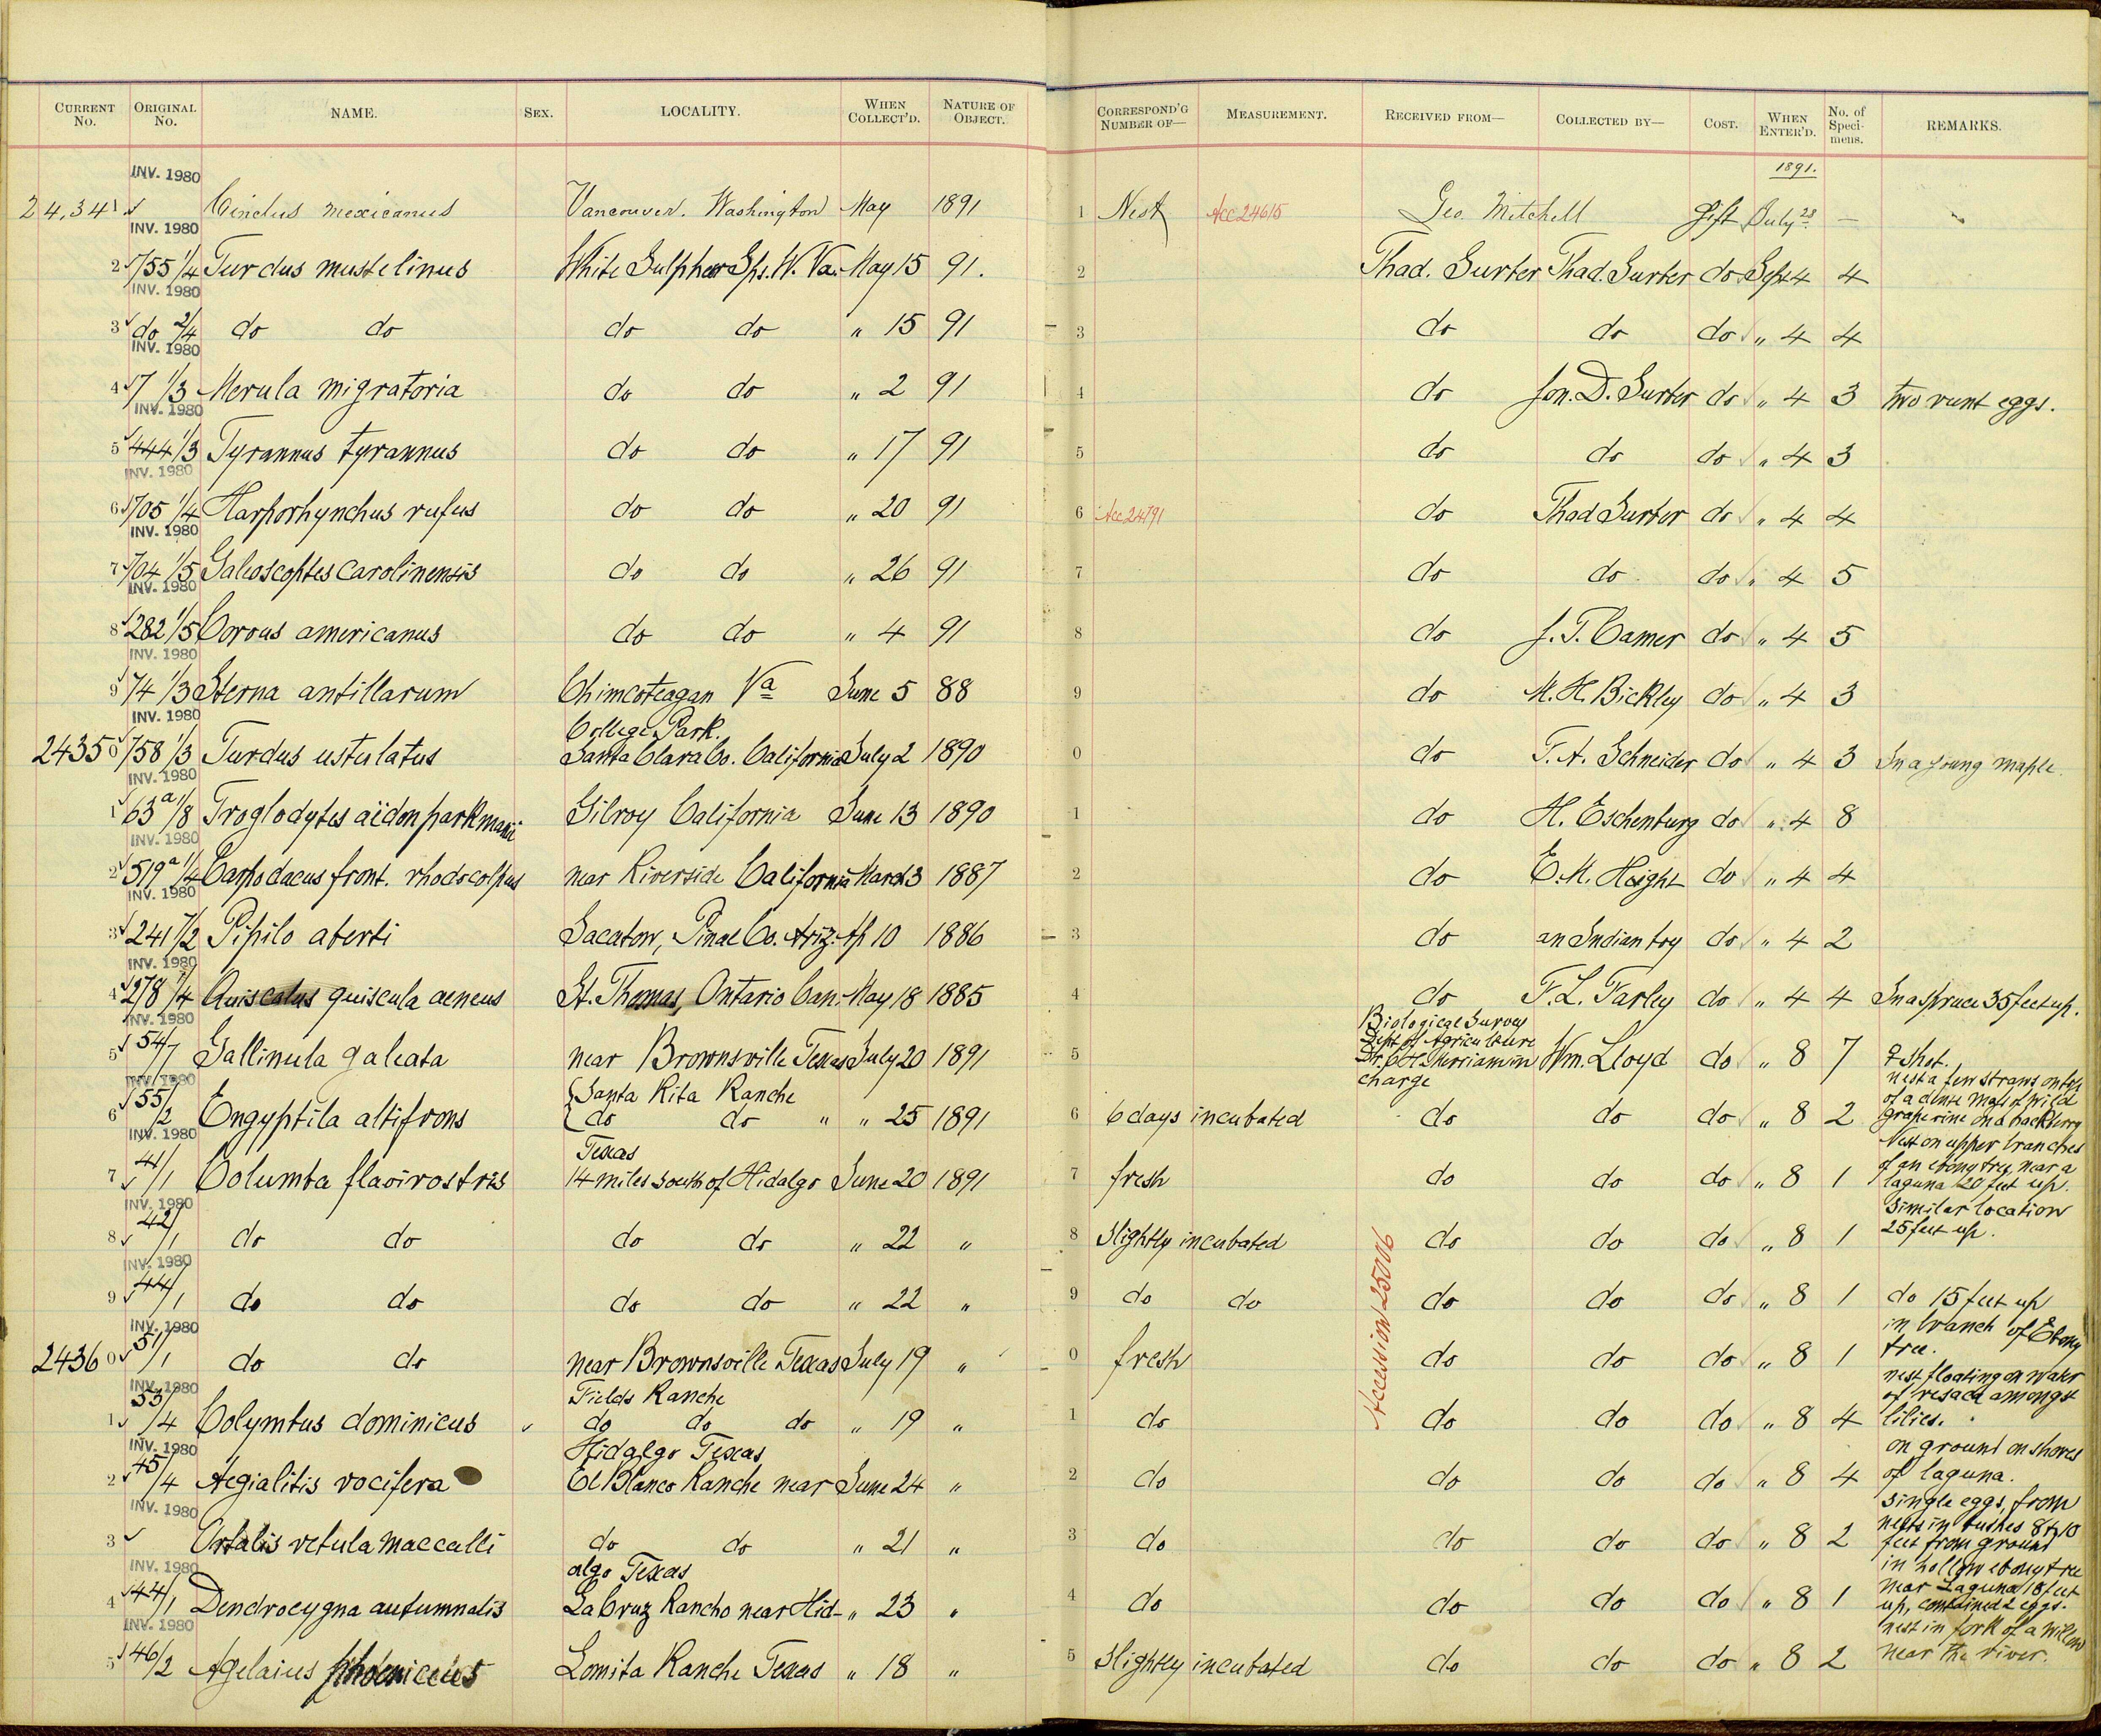 CURRENT No. ORIGINAL No. NAME. SEX. LOCALITY. WHEN COLLECT'D. NATURE OF OBJECT. CORRESPOND'G NUMBER OF— MEASUREMENT. RECEIVED FROM— COLLECTED BY— COST. WHEN ENTER'D. No. of Speci- mens. REMARKS.
INV. 1980 1891.
24,341 Cinclus mexicanus Vancouver. Washington May 1891 1 Nest Acc 24615 Geo. Mitchell Gift July 28 —
INV. 1980
2 755 1/4 Turdus mustelinus White Sulphur Sps. W. Va. May 15 91. 2 Thad. Surber Thad. Surber do Sept 4 4
INV. 1980
3 do 2/4 do do do do " 15 91 3 do do do " 4 4
INV. 1980
4 7 1/3 Merula migratoria do do " 2 91 4 do Jon. D. Surber do " 4 3 two runt eggs.
INV. 1980
5 444 1/3 Tyrannus tyrannus do do " 17 91 5 do do do " 4 3
INV. 1980
6 705 1/4 Harporhynchus rufus do do " 20 91 6 Acc 24791 do Thad Surber do " 4 4
INV. 1980
7 704 1/5 Galeoscoptes carolinensis do do " 26 91 7 do do do " 4 5
INV. 1980
8 282 1/5 Corvus americanus do do " 4 91 8 do J. T. Camer do " 4 5
INV. 1980
9 74 1/3 Sterna antillarum Chimcoteagan Va June 5 88 9 do M. H. Bickley do " 4 3
INV. 1980 College Park.
24350 758 1/3 Turdus ustulatus Santa Clara Co. California July 2 1890 0 do T. A. Schneider do " 4 3 In a young maple.
INV. 1980
1 63a 1/8 Troglodytes aëdon parkmanii Gilroy California June 13 1890 1 do H. Eschenburg do " 4 8
INV. 1980
2 519a 1/4 Carpodacus front. rhodocolpus near Riverside California March 3 1887 2 do E. M. Haight do " 4 4
INV. 1980
3 241 7/2 Pipilo aberti Sacaton, Pinal Co. Ariz. Ap 10 1886 3 do an Indian boy do " 4 2
INV. 1980
4 278 1/4 Quiscalus quiscula aeneus St. Thomas, Ontario Can. May 18 1885 4 do F. L. Farley do " 4 4 In a spruce 35 feet up.
INV. 1980 Biological Survey
Dept of Agriculture
5 54/7 Gallinula galeata near Brownsville Texas July 20 1891 5 Dr. C. H. Merriam in charge Wm. Lloyd do " 8 7 ♀ shot.
INV. 1980 Santa Rita Ranche nest a few straws on top
6 55/2 Engyptila altifrons do do " " 25 1891 6 6 days incubated do do do " 8 2 of a dense mass of wild grapevine on a hackberry
INV. 1980 Texas Nest on upper branches
7 41/1 Columba flavirostris 14 miles south of Hidalgo June 20 1891 7 fresh do do do " 8 1 of an ebony tree near a laguna 20 feet up.
INV. 1980 Similar location
8 42/1 do do do do " 22 " 8 Slightly incubated do do do " 8 1 25 feet up.
INV. 1980
9 44/1 do do do do " 22 " 9 do do do do do " 8 1 do 15 feet up
INV. 1980 in branch of Ebony
24360 51/1 do do near Brownsville Texas July 19 " 0 fresh do do do " 8 1 tree.
INV. 1980 Fields Ranche nest floating on water
of resaca amongst
1 53/4 Colymbus dominicus do do do " 19 " 1 do do do do " 8 4 lilies.
INV. 1980 Hidalgo Texas on ground on shores
2 45/4 Aegialitis vocifera El Blanco Ranche near June 24 " 2 do do do do " 8 4 of laguna.
INV. 1980 Single eggs, from
3 Ortalis vetula maccalli do do " 21 " 3 do do do do " 8 2 nests in bushes 8 to 10 feet from ground
INV. 1980 algo Texas in hollow ebony tree
4 44/1 Dendrocygna autumnalis La Cruz Rancho near Hid- " 23 " 4 do do do do " 8 1 near Laguna 18 feet up, contained 2 eggs.
INV. 1980 nest in fork of a willow
5 46/2 Agelaius phoeniceus Lomita Ranche Texas " 18 " 5 Slightly incubated do do do " 8 2 near the river.